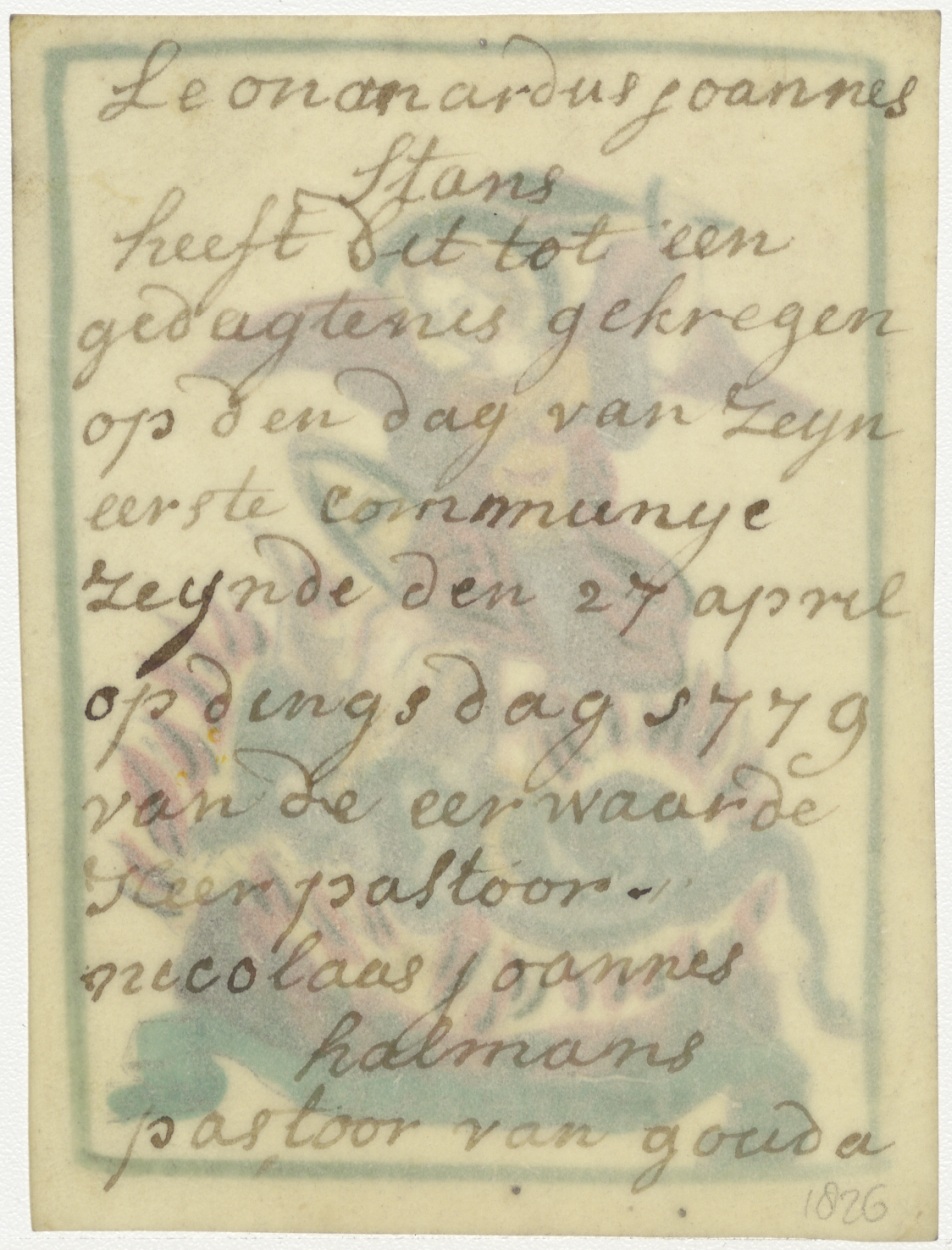 Leonanardus joannes
Stans
heeft dit tot een
gedagtenis gekregen
op den dag van zeyn
eerste communye
zeynde den 27 april
op dingsdag 1779
van de eerwaarde
Heer pastoor
nicolaas joannes
halmans
pastoor van gouda
1826